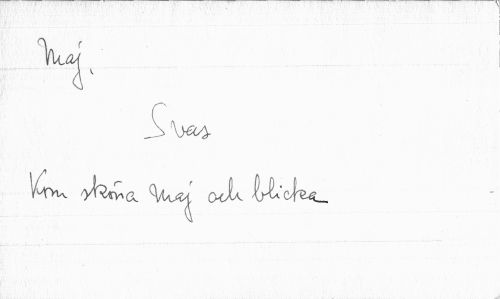 Maj.
Svas
Kom sköna Maj och blicka